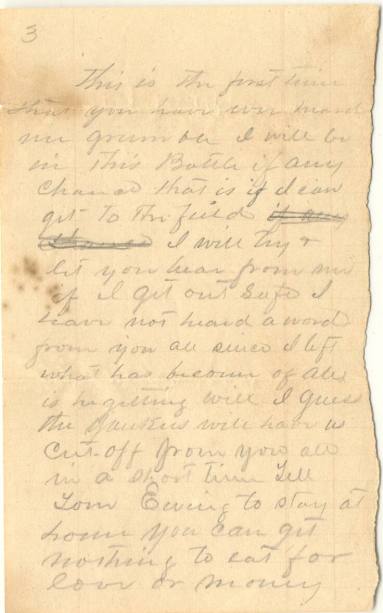 3
This is the first time
that you have ever heard
me grumble I will be
in this Battle if any
chance that is if I can
get to the field if any
chance I will try &
let you hear from me
if I get out Safe I
have not heard a word
from you all since I left
what has become of Alex
is he getting well I guess
the Yankees will have us
cut-off from you all
in a short time Tell
Tom Ewing to stay at
home you can get
nothing to eat for
love or money